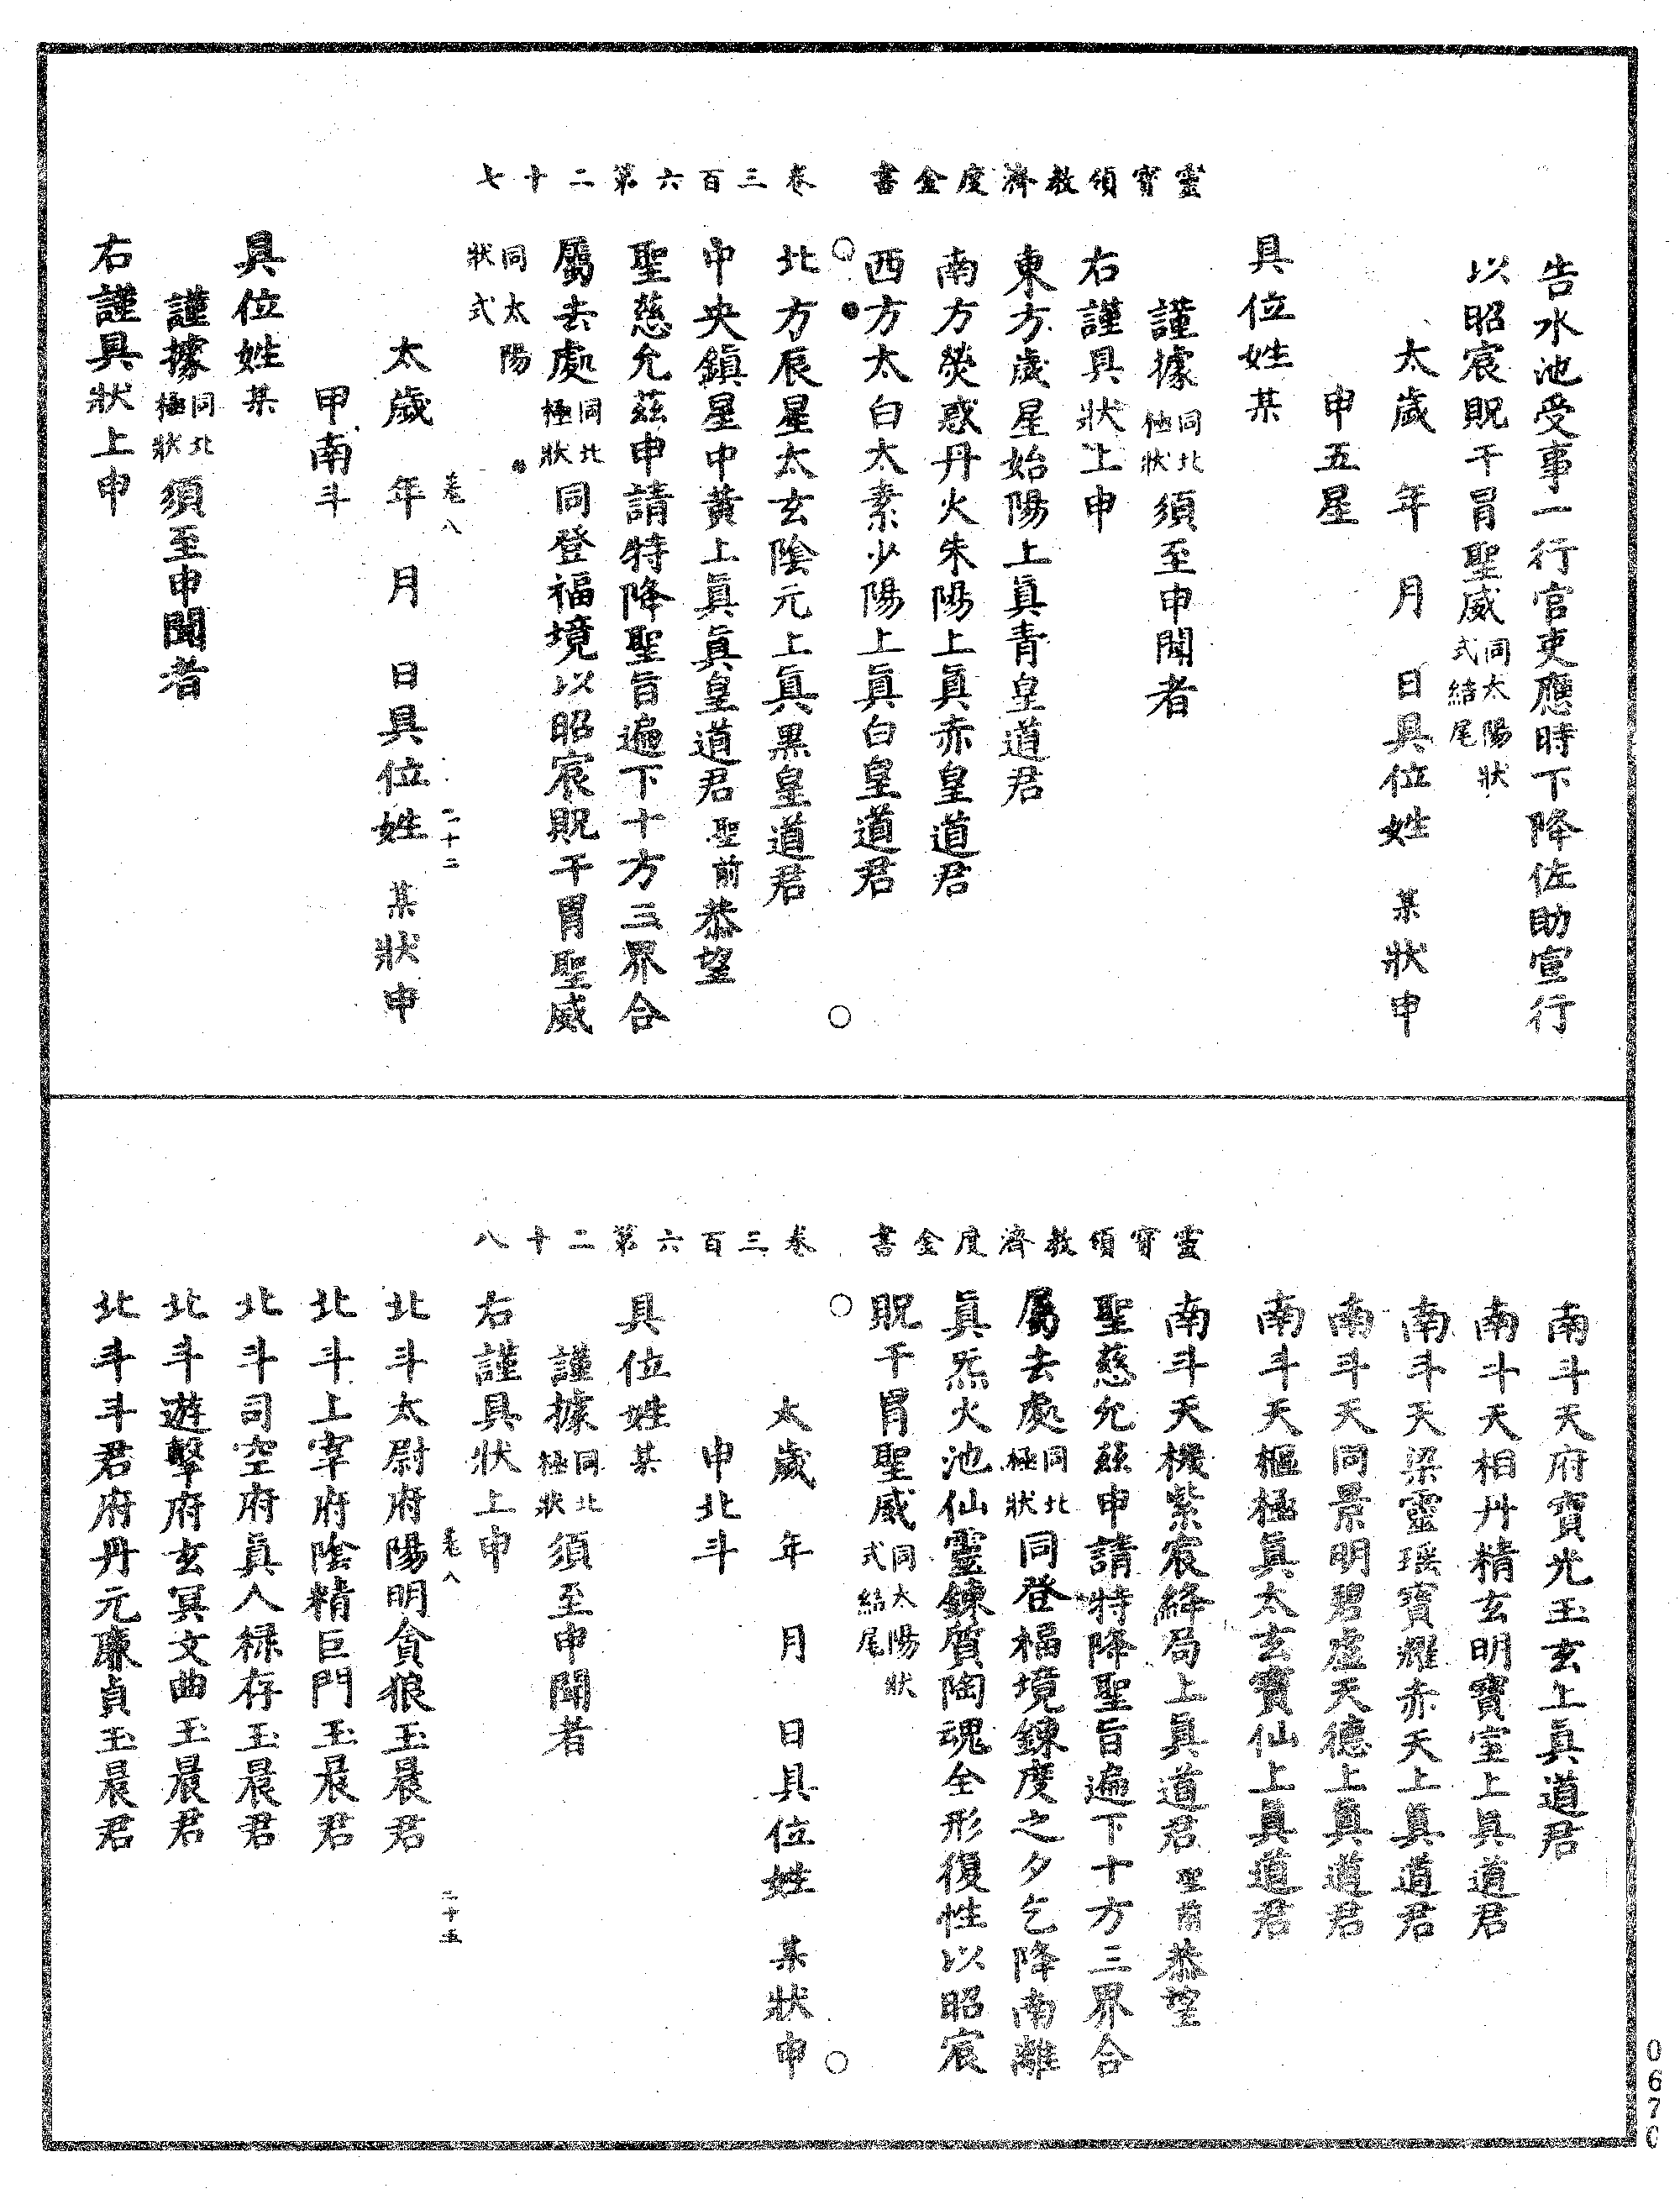 靈寶領教濟度金書　卷三百六第二十七
告水池受事一行官吏應時下降佐助宣行
以昭宸貺干冒聖威同太陽狀式結尾
太歲　年　月　日具位姓　某狀申
申五星
具位姓某
謹據同北極狀須至申聞者
右謹具狀上申
東方歲星始陽上眞青皇道君
南方熒惑丹火朱陽上眞赤皇道君
西方太白太素少陽上眞白皇道君
北方辰星太玄陰元上眞黑皇道君
中央鎮星中黃上眞眞皇道君聖前恭望
聖慈允茲申請特降聖旨遍下十方三界合
屬去處同北極狀同登福境以昭宸貺干冒聖威
同太陽狀式
卷八　二十二
太歲　年　月　日具位姓　某狀申
甲南斗
具位姓某
謹據同北極狀須至申聞者
右謹具狀上申
靈寶領教濟度金書　卷三百六第二十八
南斗天府寶光玉玄上眞道君
南斗天相丹精玄明寶室上眞道君
南斗天梁靈瑶寶耀赤天上眞道君
南斗天同景明碧虛天德上眞道君
南斗天樞極眞太玄寶仙上眞道君
南斗天機紫宸絳局上眞道君聖前恭望
聖慈允茲申請特降聖旨遍下十方三界合
屬去處同北極狀同登福境鍊度之夕乞降南離
眞炁火池仙靈鍊質陶魂全形復性以昭宸
貺干冒聖威同太陽狀式結尾
太歲　年　月　日具位姓　某狀申
申北斗
具位姓某
謹據同北極狀須至申聞者
右謹具狀上申
卷八　二十五
北斗太尉府陽明貪狼玉晨君
北斗上宰府陰精巨門玉晨君
北斗司空府眞人禄存玉晨君
北斗遊擊府玄冥文曲玉晨君
北斗斗君府丹元廉貞玉晨君
0670